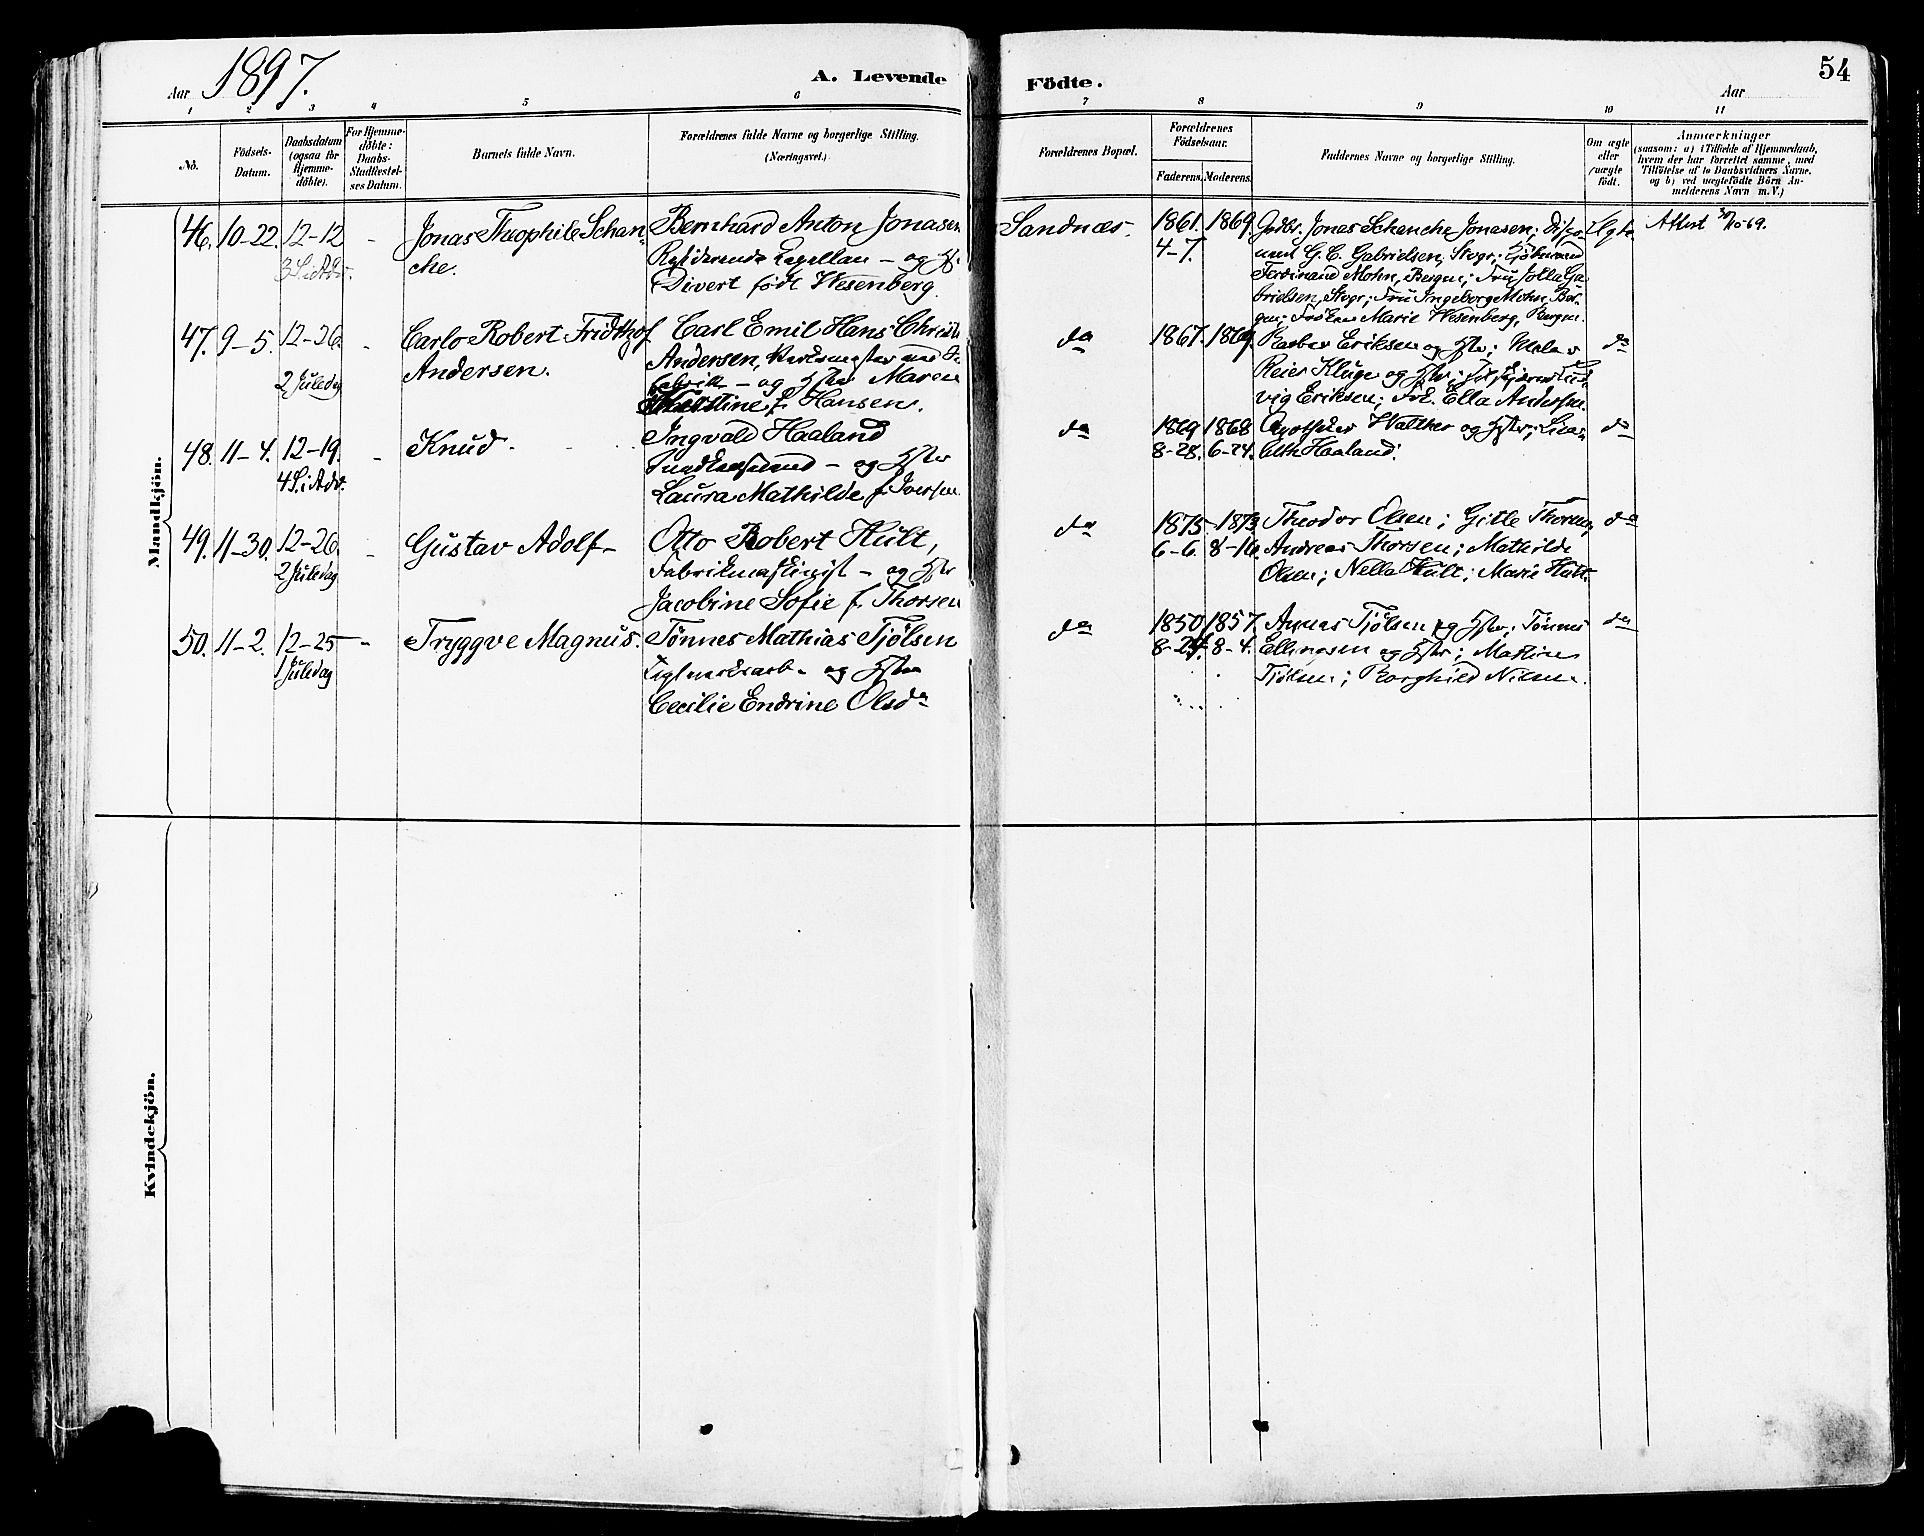 Aar 1897.
A. Levende
Födte.
54
Aar
1 2 3 4 5 6 7 8 9 10 11
No.
Födsels-
Datum.
Daabsdatum
(ogsaa for
Hjemme-
döbte).
For Hjemme-
döbte:
Daabs-
Stadfestel-
ses Datum.
Barnets fulde Navn.
Forældrenes fulde Navne og borgerlige Stilling.
(Næringsvei.)
Forældrenes Bopæl.
Forældrenes
Födselsaar.
Faderens. Moderens.
Faddernes Navne og borgerlige Stilling.
Om ægte
eller
uægte
födt.
Anmærkninger
(saasom: a) i Tilfælde af Hjemmedaab,
hvem der har forrettet samme, med
Tilföielse af to Daabsvidners Navne,
og b) ved uægtefödte Börn An-
melderens Navn m. V.)
Mandkjön.
46. 10-22. 12-12 -
3 S. i Adv.
Jonas Theophile Schan-
che.
Bernhard Anton Jonasen
Residerende Kapellan - og H.
Divert födt Wesenberg
Sandnæs.
1861. 1869.
4-7.
Godbr. Jonas Schanche Jonasen; Dispo-
nent G. C. Gabrielsen, Stvgr;
Ferdinand Mohn, Bergen; Fru Ga-
brielsen, Stvgr; Fru Ingeborg Mohn, Ber-
gen; Fröken Marie Wesenberg, Bergen.
Ægte.
Attest 30/10-69.
47. 9-5. 12-26. -
2 Juledag
Carlo Robert Fridthjof
Andersen.
Carl Emil Hans Christi
Andersen,
- og Hstr Maren
f. Hansen.
da
1867. 1869.
Barber Eriksen og Hstr; Maler
Reier Kluge og Hstr;
vig Eriksen; Frk. Ella Andersen.
da
48. 11-4. 12-19. -
4 S. i Adv.
Knud -
Ingvald Haaland
- og Hstr
Laura Mathilde f. Iversen
da
1869 1868
8-28. 6-24.
Walther og Hstr;
Haaland.
da
49. 11-30. 12-26. -
2 Juledag
Gustav Adolf -
Otto Robert Hult,
Fabrikmaskinist - og Hstr
Jacobine Sofie f. Thorsen
da
1875 1873
6-6. 8-16.
Theodor Olsen; Gitle Thorsen,
Andreas Thorsen; Mathilde
Olsen; Nella Hult; Marie Hult.
da
50. 11-2. 12-25 -
1 Juledag
Tryggve Magnus.
Tönnes Mathias Tjölsen
Teglverksarb. - og Hstr
Cecilie Endrine Olsdr
da
1850 1857.
8-24. 8-4.
Tjölsen og Hstr; Tönnes
Ellingsen og Hstr; Martine
Tjölsen; Borghild Nilsen.
da
Kvindekjön.